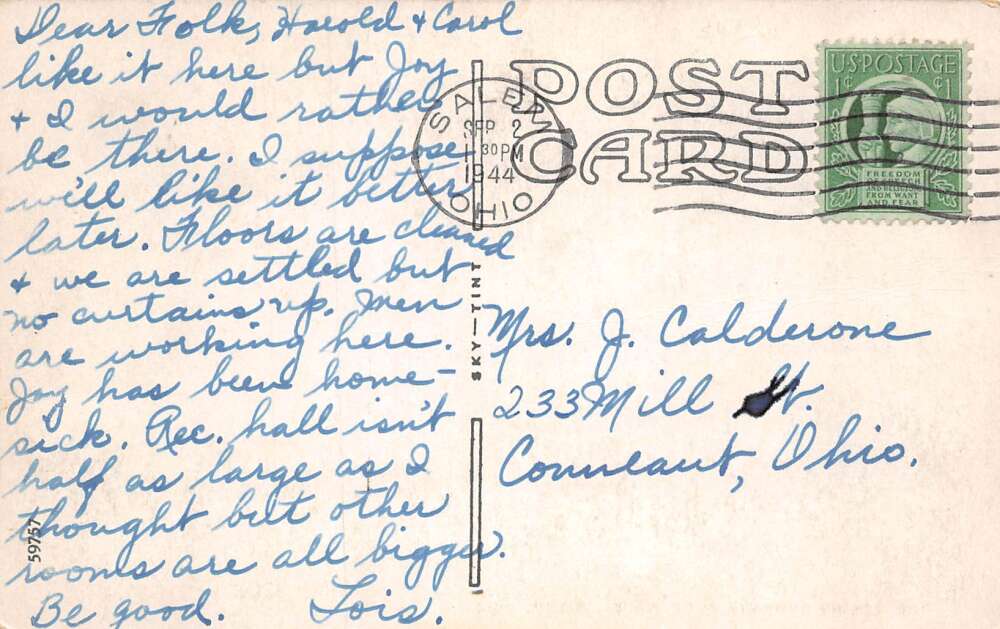 Dear Folk, Harold & Carol
like it here but Joy
& I would rather
be there. I suppose
we'll like it better
later. Floors are cleaned
& we are settled but
no curtains up. Men
are working here.
Joy has been home-
sick. Rec. hall isn't
half as large as I
thought but other
rooms are all bigger.
Be good. Lois.
59757
SKY-TINT
POST
CARD
SALEM
SEP 2
1 30 PM
1944
OHIO
U.S. POSTAGE
1¢ 1¢
FREEDOM
OF SPEECH
AND RELIGION
FROM WANT
AND FEAR
Mrs. J. Calderone
233 Mill St.
Conneaut, Ohio.